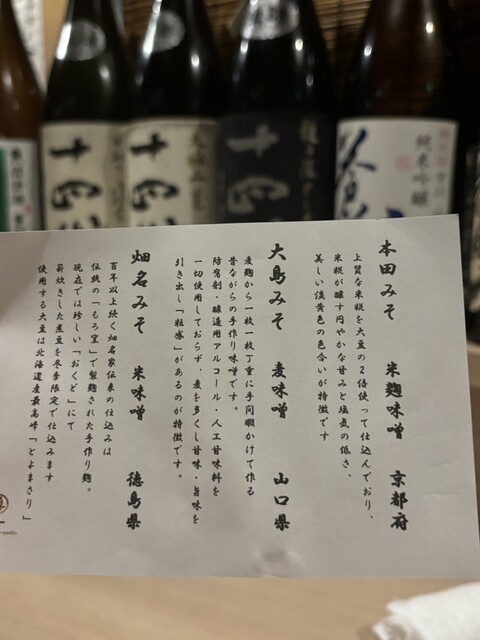 本田みそ 米麹味噌 京都府
上質な米糀を大豆の2倍使って仕込んでおり、
米糀が醸す円やかな甘みと塩気の低さ、
美しい淡黄色の色合いが特徴です
大島みそ 麦味噌 山口県
麦麹から一枚一枚丁重に手間暇かけて作る
昔ながらの手作り味噌です。
防腐剤・醸造用アルコール・人工甘味料を
一切使用しておらず、麦を多くし甘味・旨味を
引き出し「粒感」があるのが特徴です。
畑名みそ 米味噌 徳島県
百年以上続く畑名家伝来の仕込みは
伝統の「もろ室」で製麹された手作り麹。
現在では珍しい「おくど」にて
薪炊きした煮豆を冬季限定で仕込みます
使用する大豆は北海道産最高峰「とよまさり」
十四代
十四代
純米吟醸